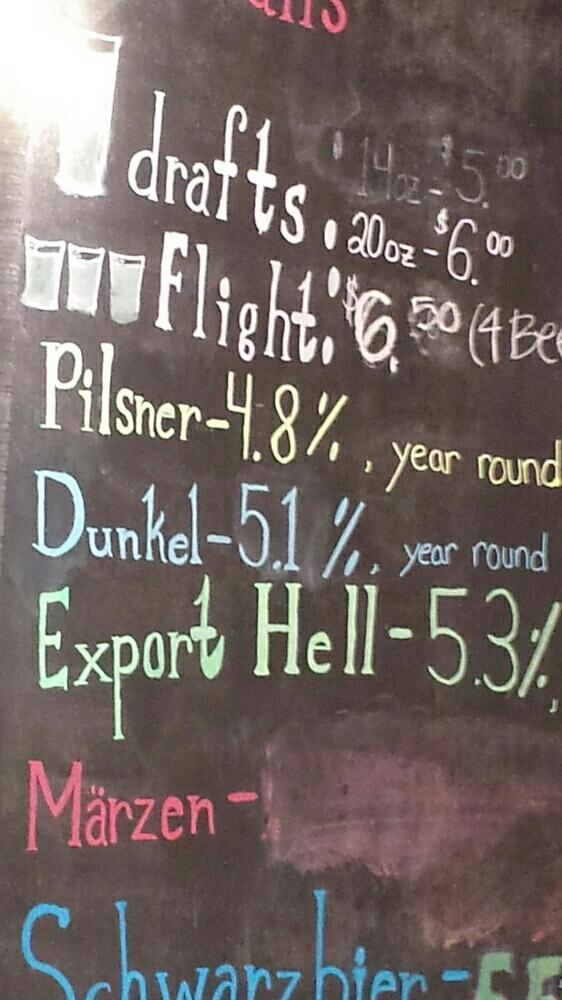 drafts. 14oz - $5.00
20oz - $6.00
Flight: $6.50 (4 Bee
Pilsner - 4.8%, year round
Dunkel - 5.1%, year round
Export Hell - 5.3%,
Märzen -
Schwarzbier -